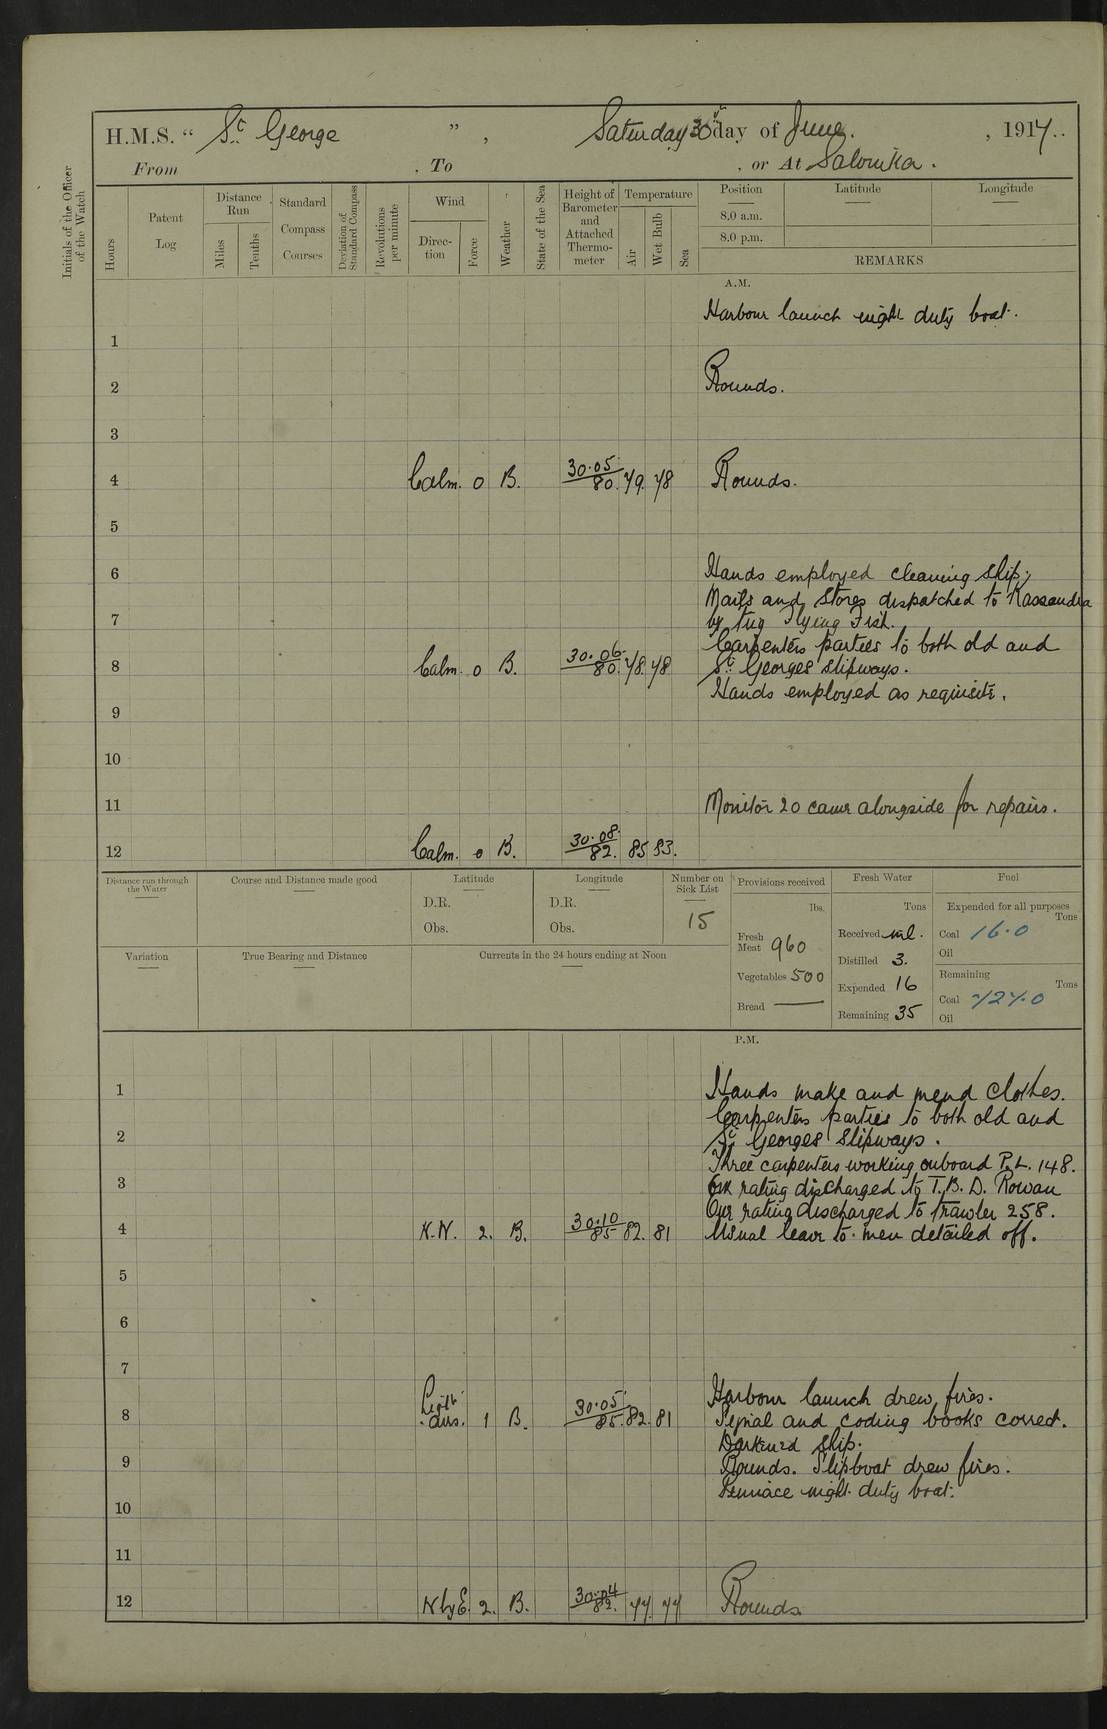 H.M.S. " St George ", Saturday 30th day of June, 1917.
From , To , or At Salonika.
Initials of the Officer of the Watch
Hours
Patent Log
Distance Run
Miles
Tenths
Standard Compass Courses
Deviation of Standard Compass
Revolutions per minute
Wind
Direction
Force
Weather
State of the Sea
Height of Barometer and Attached Thermometer
Temperature
Air
Wet Bulb
Sea
Position Latitude Longitude
8.0 a.m.
8.0 p.m.
REMARKS
A.M.
Harbour launch night duty boat.
1
2 Rounds.
3
4 Calm. 0 B. 30.05/80. 79. 78 Rounds.
5
6 Hands employed cleaning ship;
Mails and Stores dispatched to Kassandra
7 by tug Flying Fish.
Carpenters parties to both old and
8 Calm. 0 B. 30.06/80. 78. 78 St Georges slipways.
Hands employed as requisite.
9
10
11 Monitor 20 came alongside for repairs.
12 Calm. 0 B. 30.08/82. 85 83.
Distance run through the Water
Course and Distance made good
Latitude
D.R.
Obs.
Longitude
D.R.
Obs.
Number on Sick List
15
Provisions received
lbs.
Fresh Meat 960
Vegetables 500
Bread —
Fresh Water
Tons
Received nil.
Distilled 3.
Expended 16
Remaining 35
Fuel
Expended for all purposes
Tons
Coal 16.0
Oil
Remaining
Tons
Coal 727.0
Oil
Variation
True Bearing and Distance
Currents in the 24 hours ending at Noon
P.M.
1 Hands make and mend clothes.
Carpenters parties to both old and
2 St Georges Slipways.
Three carpenters working onboard P.L. 148.
3 rating discharged to T.B.D. Rowan
One rating discharged to trawler 258.
4 N.N. 2. B. 30.10/85 82. 81 Usual leave to men detailed off.
5
6
7
Harbour launch drew fires.
8 Light airs. 1 B. 30.05/85. 82. 81 Signal and coding books correct.
Darkened ship.
9 Rounds. Slipboat drew fires.
Pinnace night duty boat.
10
11
12 N by E. 2. B. 30.04/82. 77. 77 Rounds